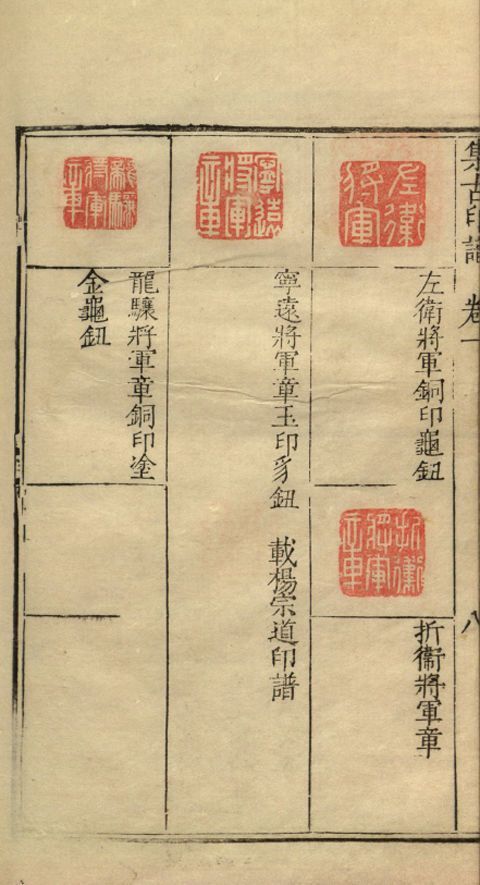 集古印譜 卷一 八
左衛將軍
左衛將軍銅印龜鈕
折衝將軍章
折衝將軍章
寧遠將軍章
寧遠將軍章玉印豸鈕 載楊宗道印譜
龍驤將軍章
龍驤將軍章銅印塗
金龜鈕